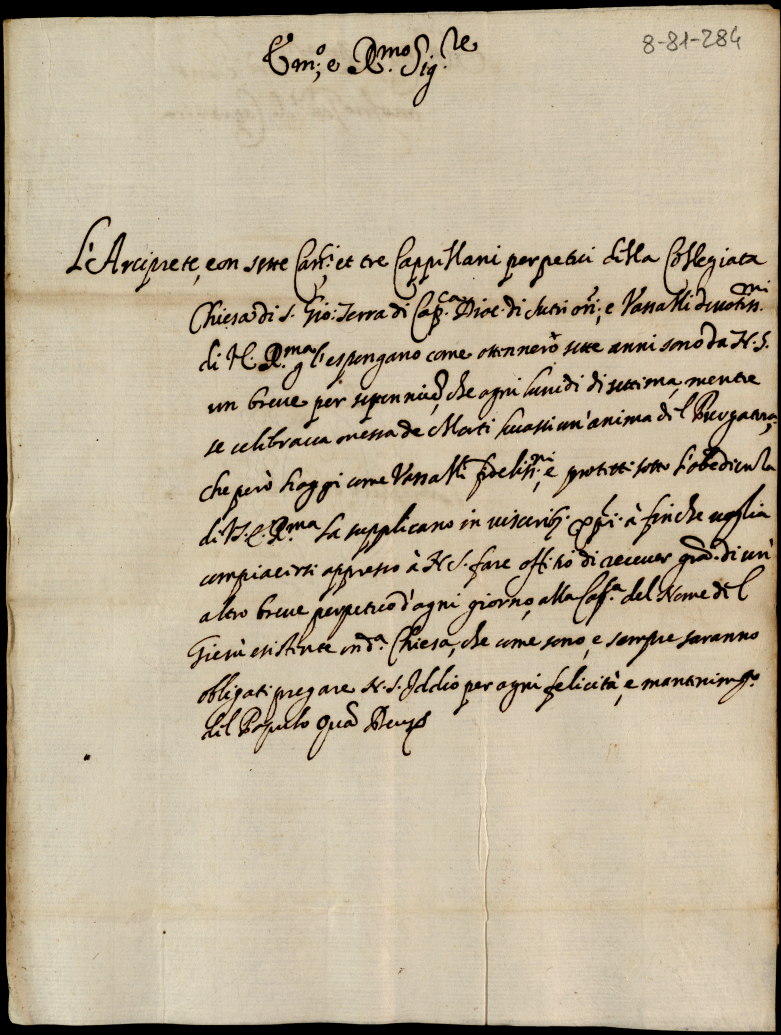 8-81-284
Em:o e R.mo Sig.re
L'Arciprete, con sette Can.ci et tre Cappellani perpetui della Collegiata
Chiesa di S. Gio: Terra di Cap.ca Dioc. di Sutri ori, e Vassalli devotiss.mi
di V. R.ma l'espongano come ottennero sette anni sono da N. S.
un breve per septennium, che ogni lunedi di settima, mentre
se celibrava messa de Morti levassi un'anima del Purgator,
che però hoggi come Vassalli fideliss.mi, e protetti sotto l'obedienza
di V. E. R.ma La supplicano in visceribs. Xpi. à finche voglia
compiacersi appresso à N S. fare offitio di recever gra. di un'
altro breve perpetuo d'ogni giorno, alla Cap.a del Nome del
Giesù esistente in d.a Chiesa, che come sono, e sempre saranno
obligati pregare N. S. Iddio per ogni felicità, e mantenim.to
del Populo Quam Deus